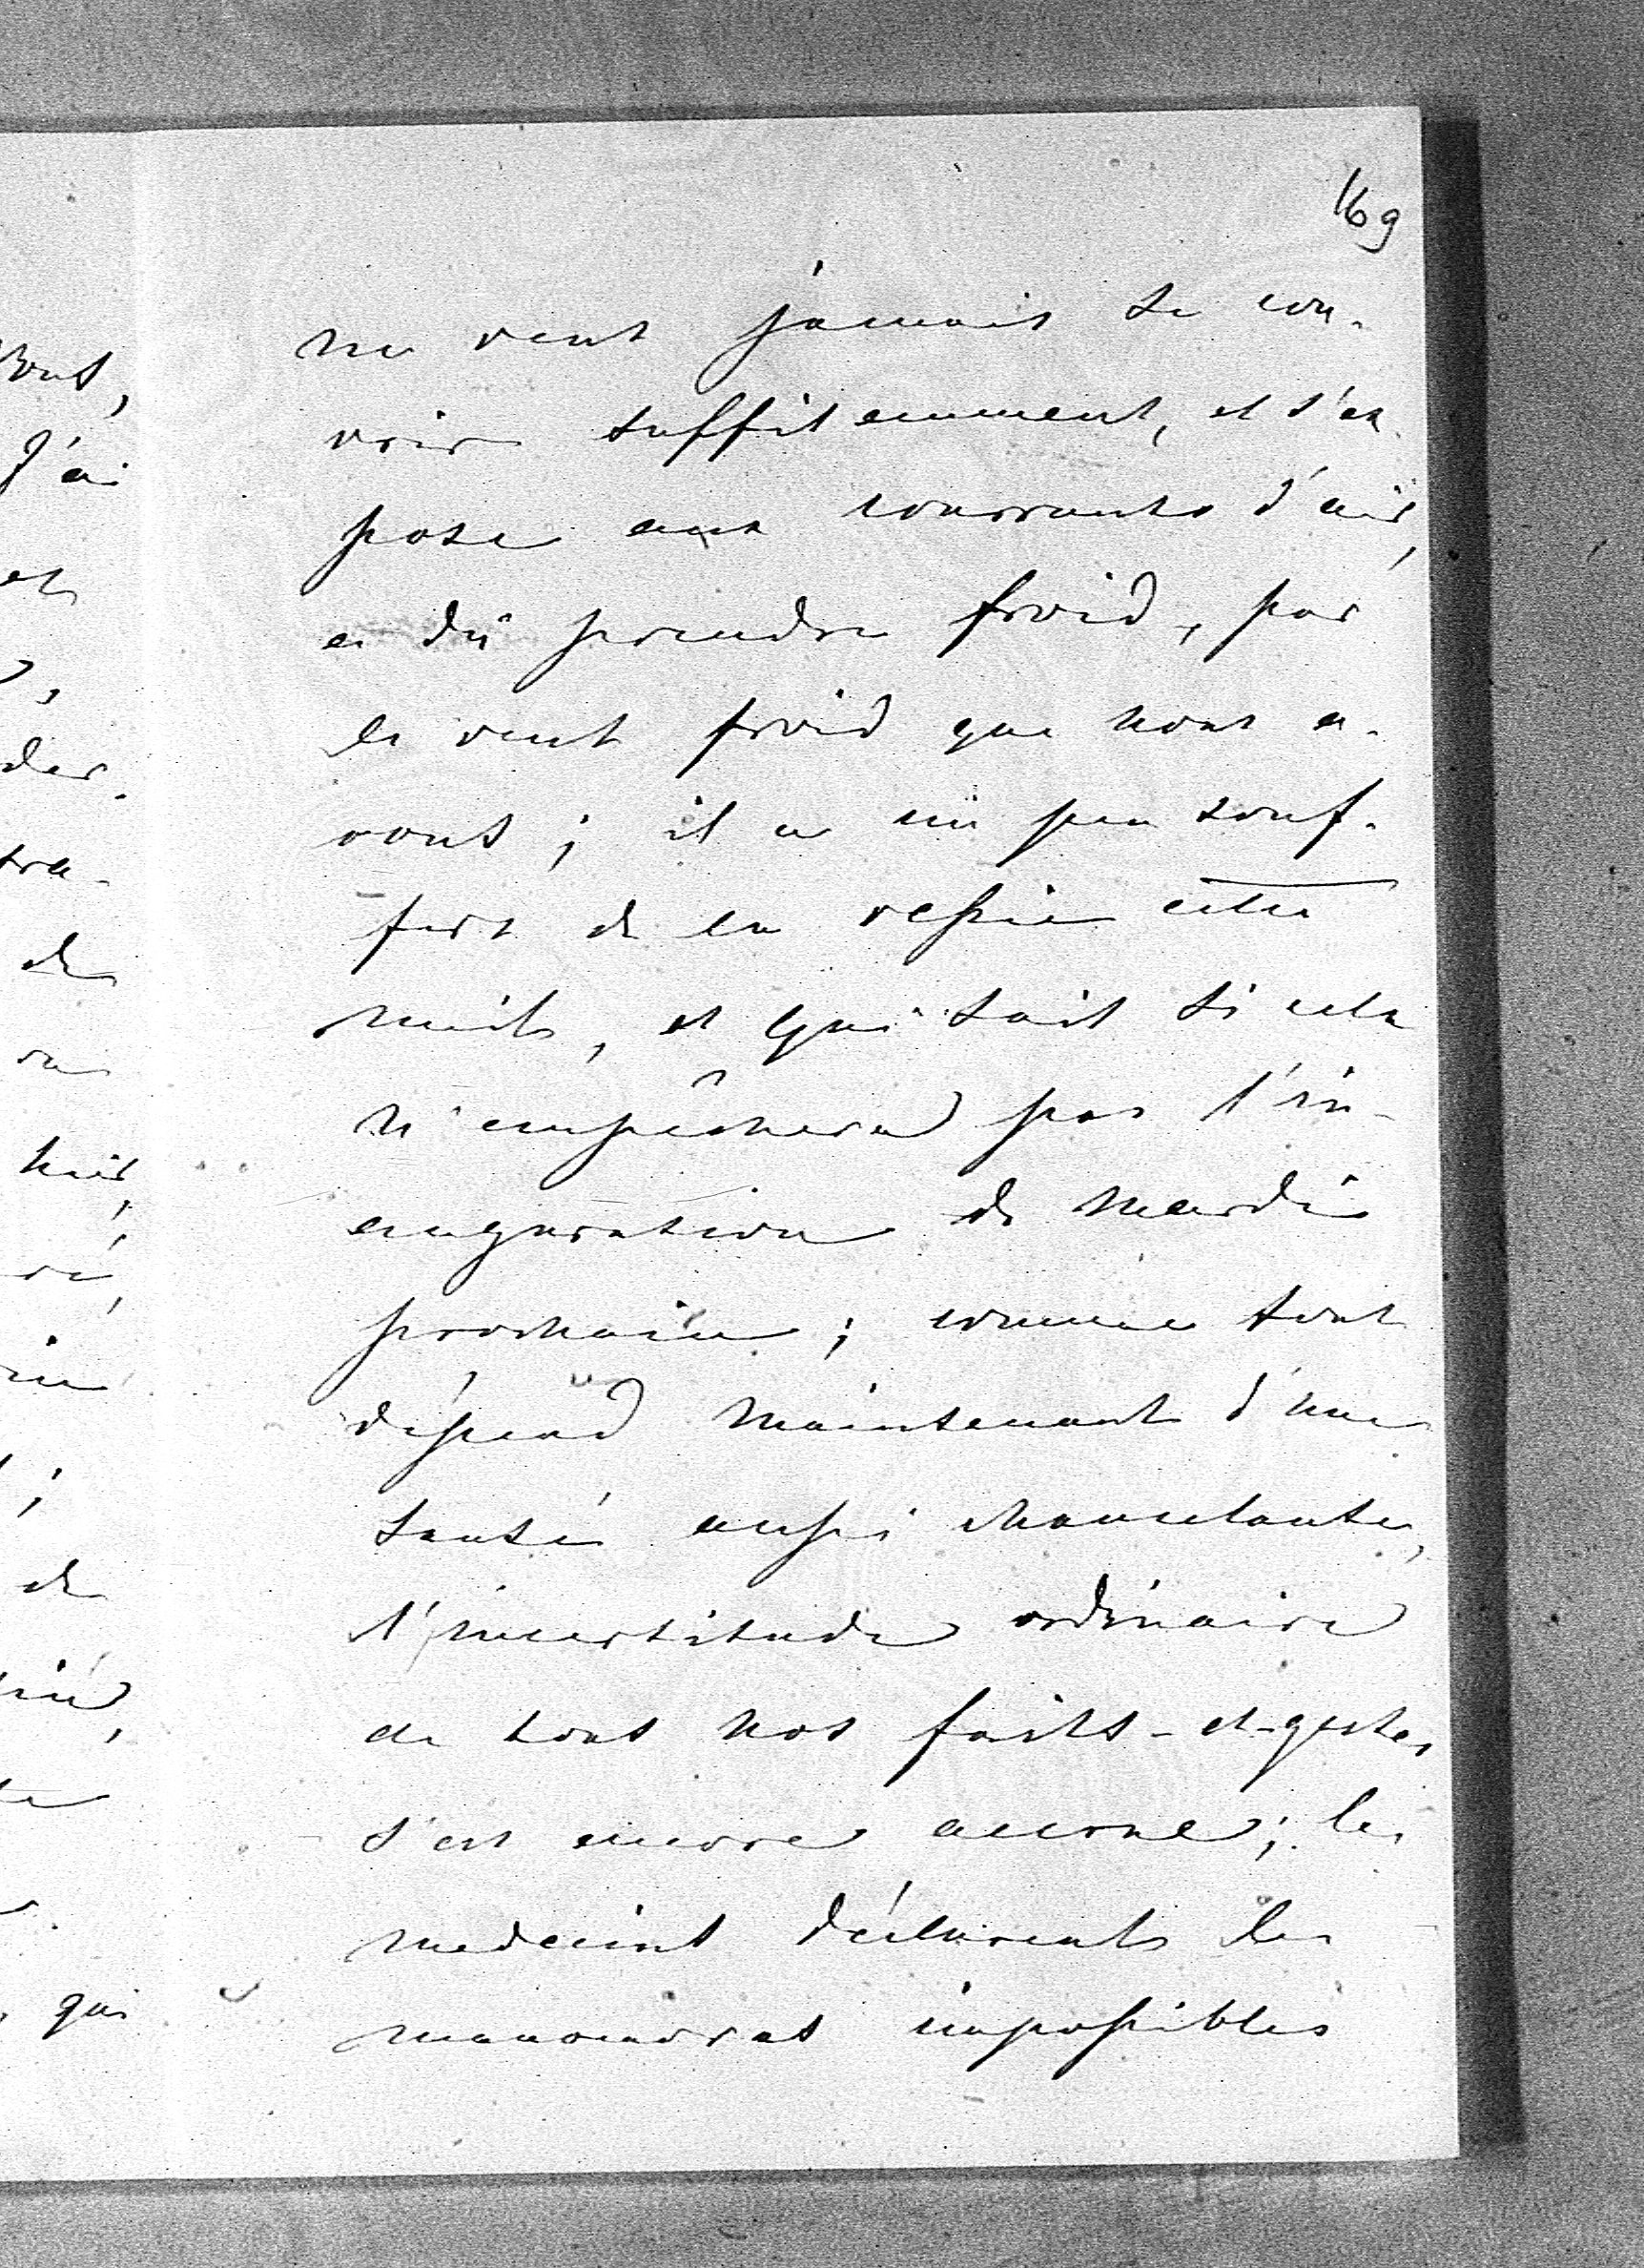 169
ne veut jamais se cou-
vrir suffisemment, et s'ex-
pose aux courrants d'air,
a dû prendre froid, par
le vent froid que nous a-
vons; il a un peu souf-
fert de la vessie cette
nuit, et qui sait si cela
n'empêchera pas l'in-
auguration de Mardi
prochain; comme tout
dépend maintenant d'une
santé aussi chancelante,
l'incertitude ordinaire
de tous nos faits-et-gestes
s'est encore accrue; les
medecins déclarent les
manoeuvres impossibles
J'ai
et
de
qui